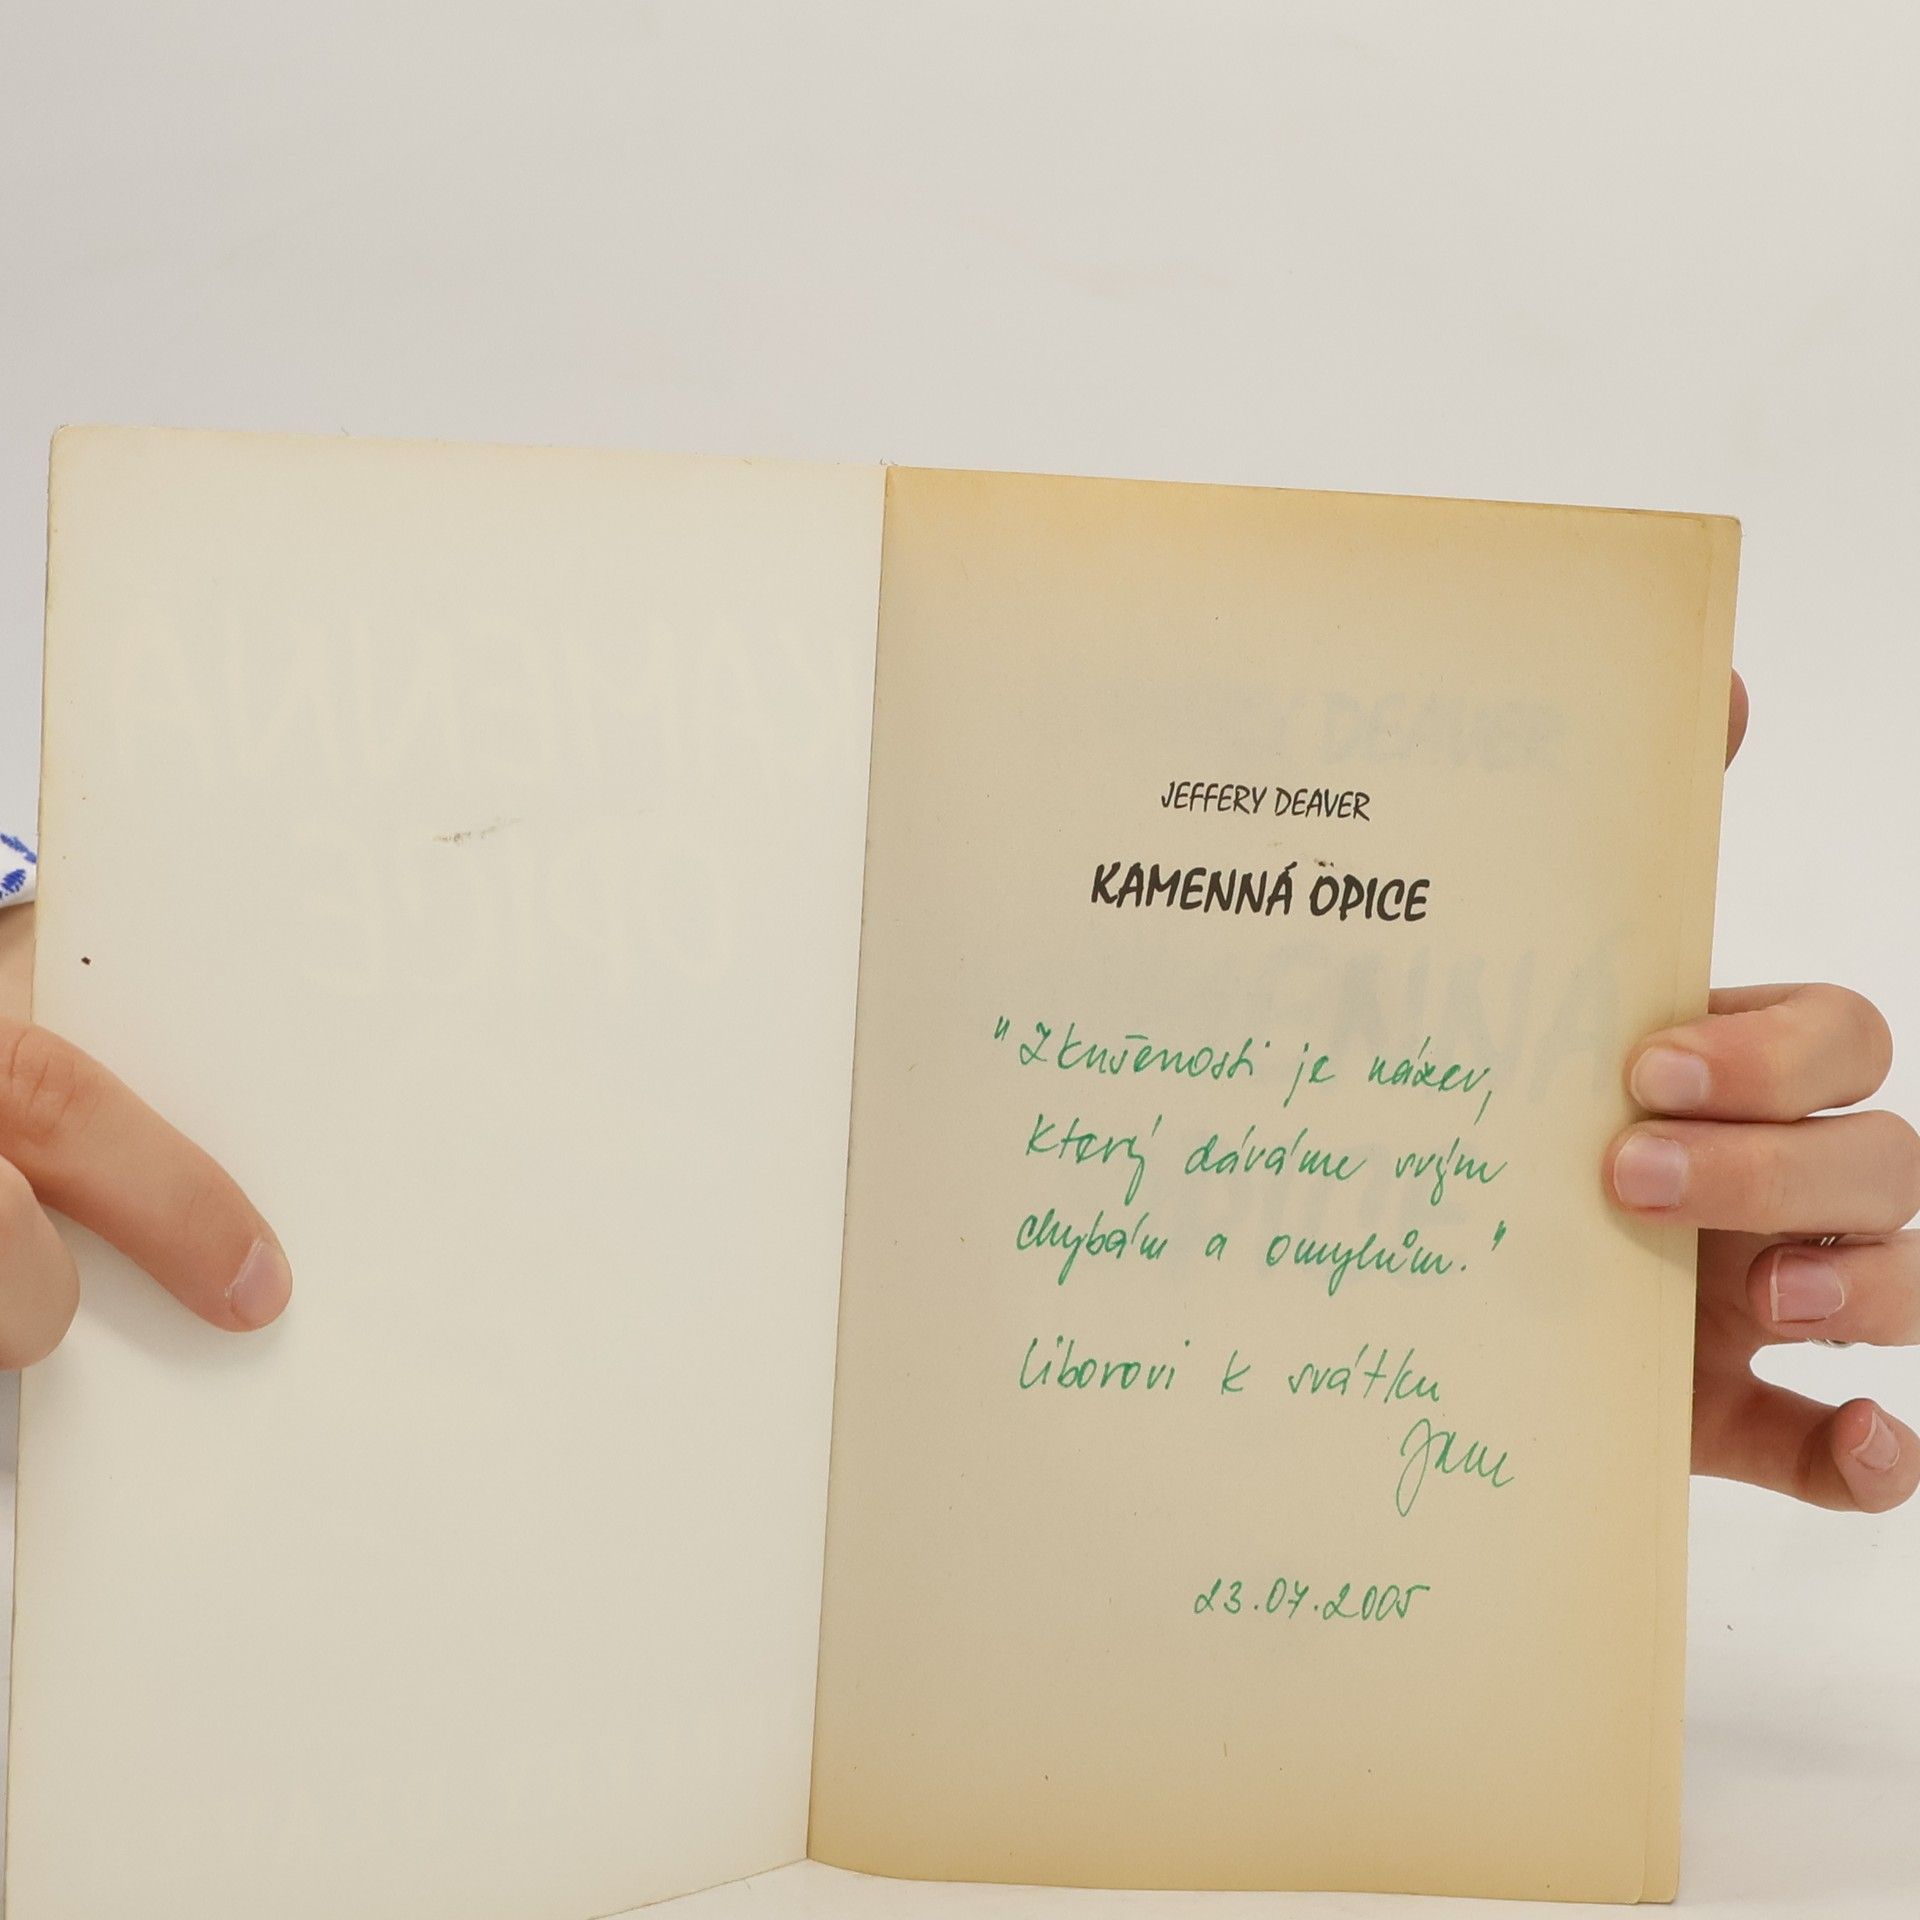 JEFFERY DEAVER
KAMENNÁ OPICE
"Zkušenosti je název,
který dáváme svým
chybám a omylům."
Liborovi k svátku
Jane
23.07.2005